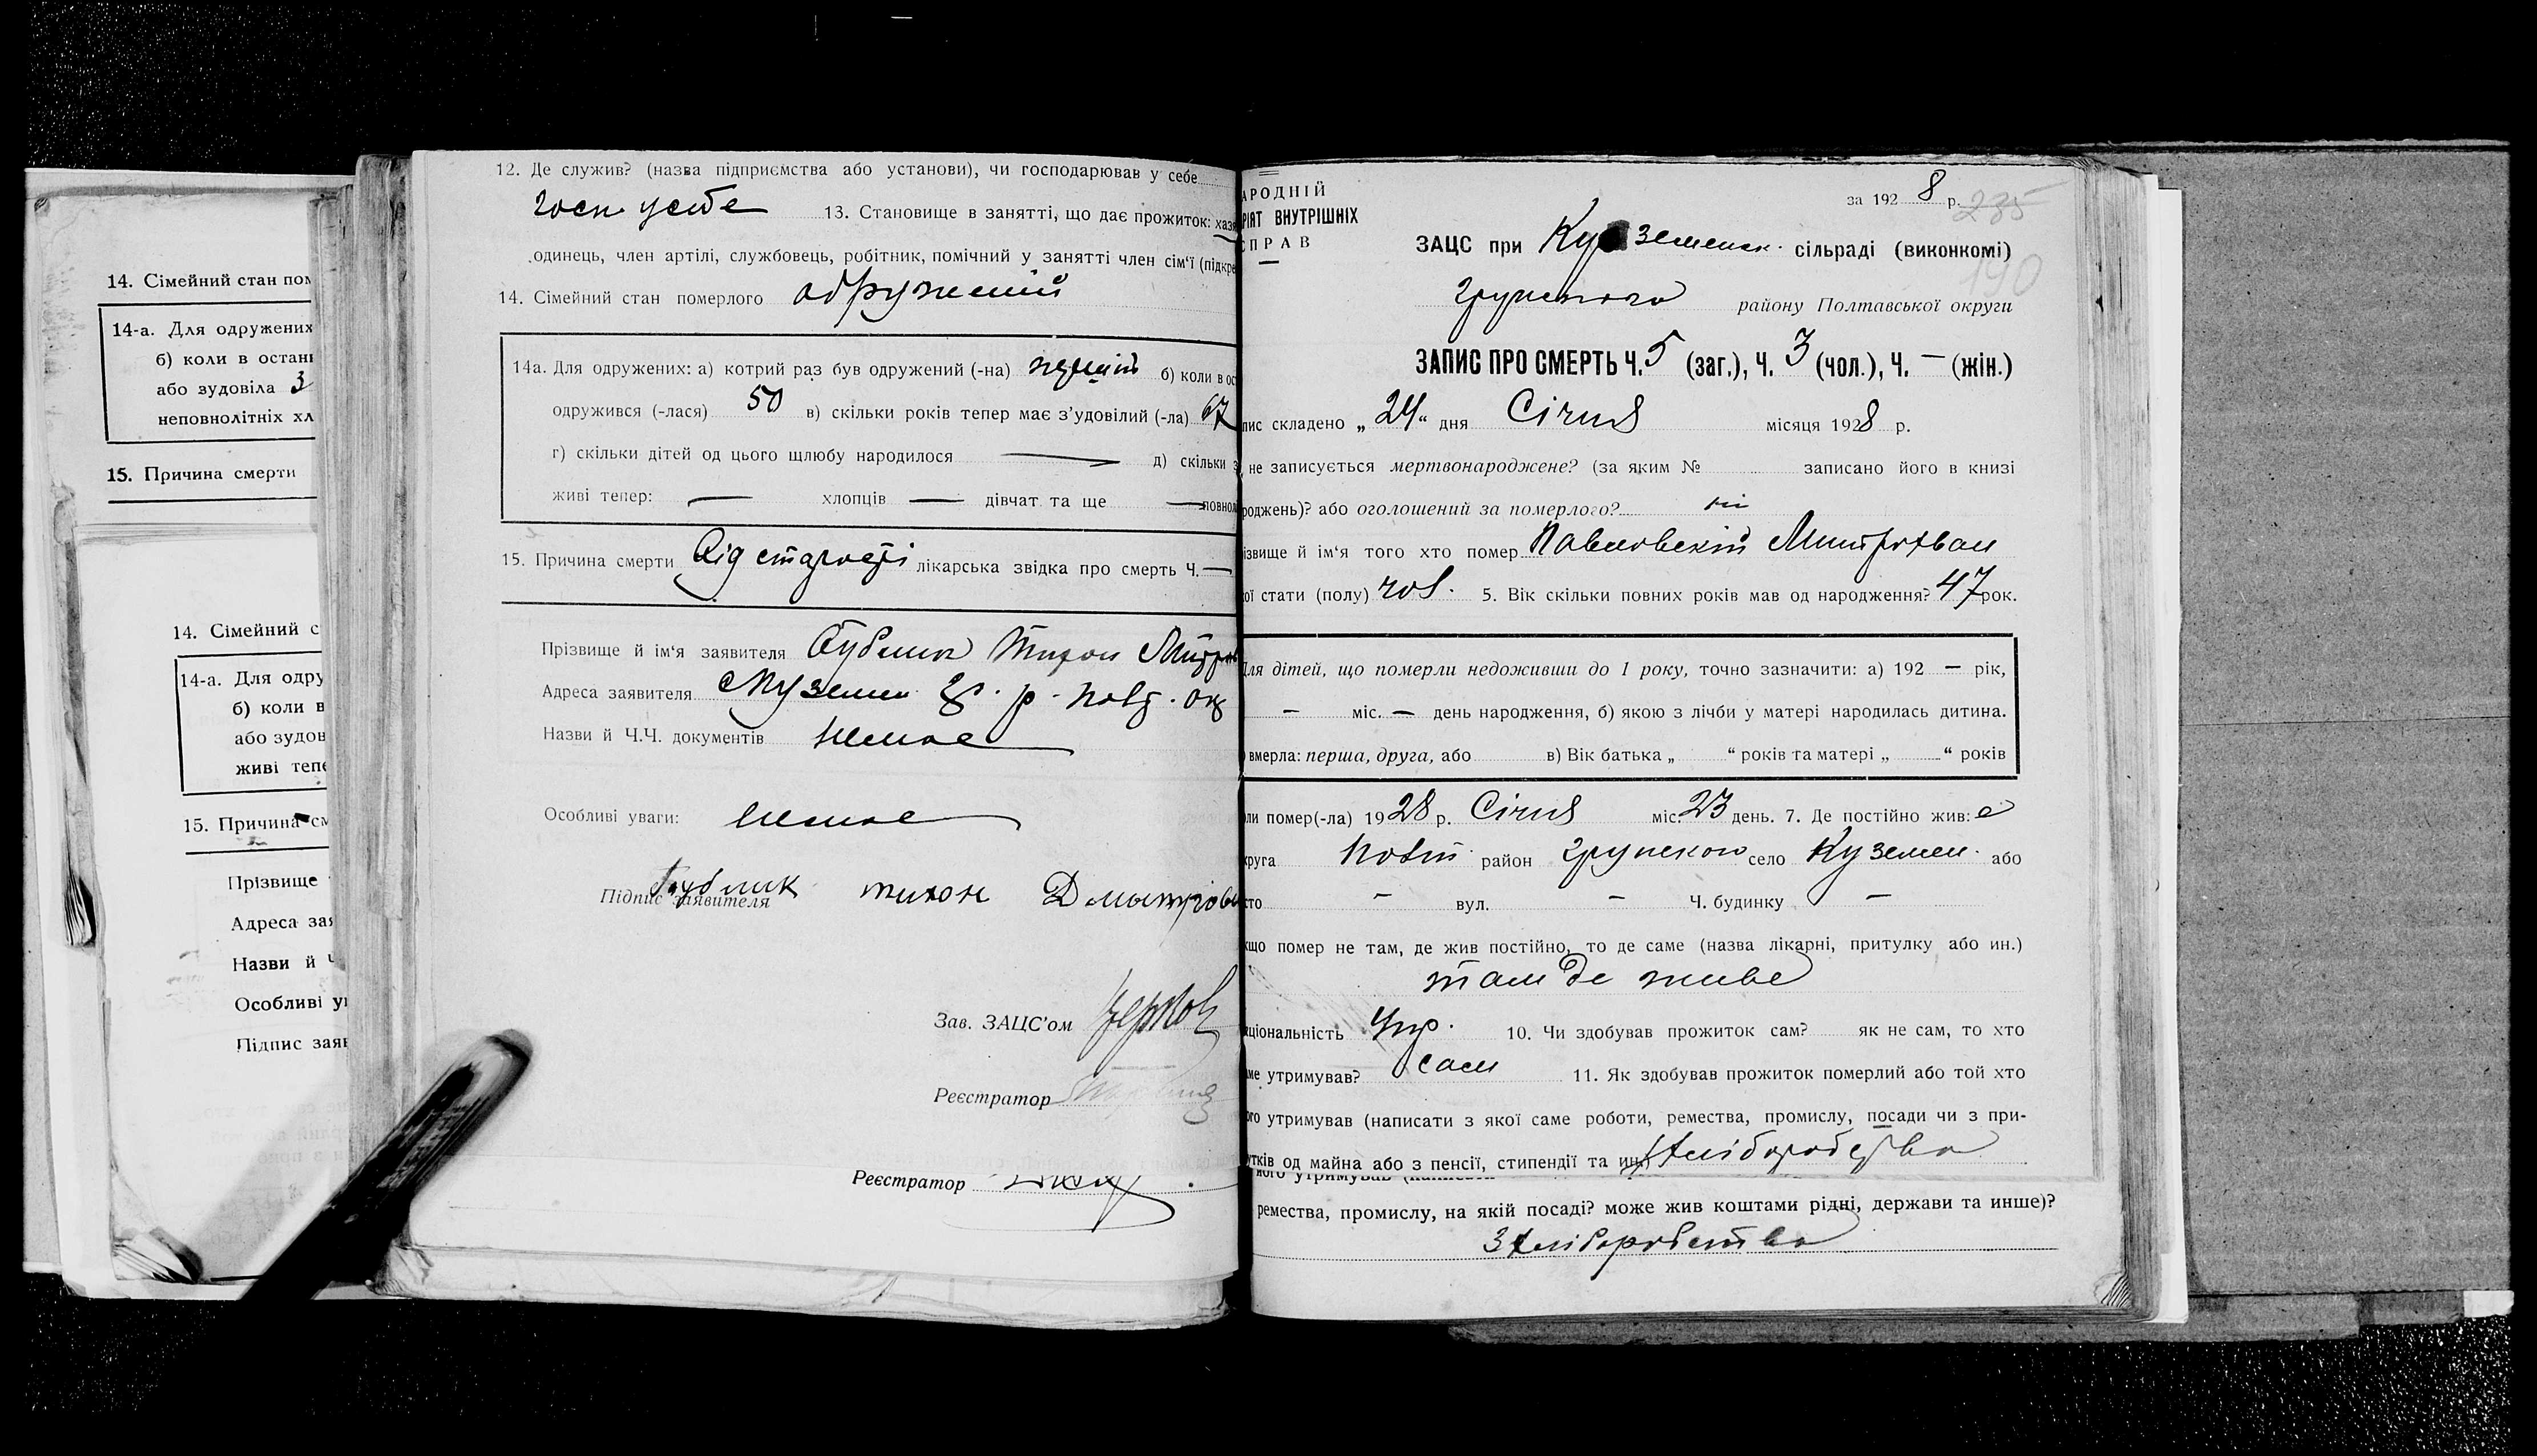 14. Сімейний стан пом
14-а. Для одружених
б) коли в остан
або зудовіла 3
неповнолітніх хл
15. Причина смерти
14. Сімейний с
14-а. Для одру
б) коли в
або зудов
живі тепе
15. Причина см
Прізвище
Адреса зая
Назви й Ч
Особливі ув
Підпис заяв
12. Де служив? (назва підприємства або установи), чи господарював у себе
госп. у себе 13. Становище в занятті, що дає прожиток: хазя
одинець, член артілі, службовець, робітник, помічний у занятті член сім‘ї (підкре
14. Сімейний стан померлого одружений
14а. Для одружених: а) котрий раз був одружений (-на) перший б) коли в ос
одружився (-лася) 50 в) скільки років тепер має з’удовілий (-ла) 67
г) скільки дітей од цього щлюбу народилося — д) скільки з
живі тепер: — хлопців — дівчат та ще — повнол
15. Причина смерти Від старості лікарська звідка про смерть Ч. —
Прізвище й ім‘я заявителя Бублик Тихон Митров
Адреса заявителя Куземен Гр. р. Полт. ок
Назви й Ч.Ч. документів Немає
Особливі уваги: немає
Підпис заявителя Бублик тихон Дмытрови
Зав. ЗАЦС’ом
Реєстратор
Реєстратор
АРОДНІЙ
РІЯТ ВНУТРІШНІХ
СПРАВ
за 192 8 р. 235
ЗАЦС при Куземенск. сільраді (виконкомі)
190
Грунського району Полтавської округи
ЗАПИС ПРО СМЕРТЬ Ч. 5 (заг.), Ч. 3 (чол.), Ч. — (жін.)
пис складено „ 24 “ дня Січня місяця 1928 р.
, не записується мертвонароджене? (за яким № записано його в книзі
роджень)? або оголошений за померлого? ні
ізвище й ім‘я того хто помер Павловскій Митрофван
ої стати (полу) чол. 5. Вік скільки повних років мав од народження? 47 рок.
Для дітей, що померли недоживши до 1 року, точно зазначити: а) 192 — рік,
— міс. — день народження, б) якою з лічби у матері народилась дитина.
вмерла: перша, друга, або в) Вік батька „ “ років та матері „ “ років
ли помер(-ла) 1928 р. Січня міс. 23 день. 7. Де постійно жив: е
круга Полт. район Грунского село Куземен. або
сто — вул. — Ч. будинку —
кщо помер не там, де жив постійно, то де саме (назва лікарні, притулку або ин.)
там де живе
ціональність Укр. 10. Чи здобував прожиток сам? як не сам, то хто
ме утримував? сам 11. Як здобував прожиток померлий або той хто
ого утримував (написати з якої саме роботи, ремества, промислу, посади чи з при-
утків од майна або з пенсії, стипендії та ин.) Хліборобство
ного утримував (написати
ремества, промислу, на якій посаді? може жив коштами рідні, держави та инше)?
З хліборобства